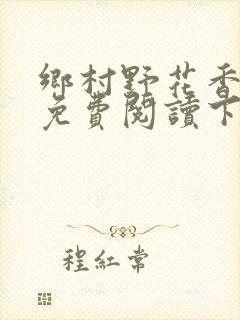 鄉村野花香
免費閱讀下
程紅常